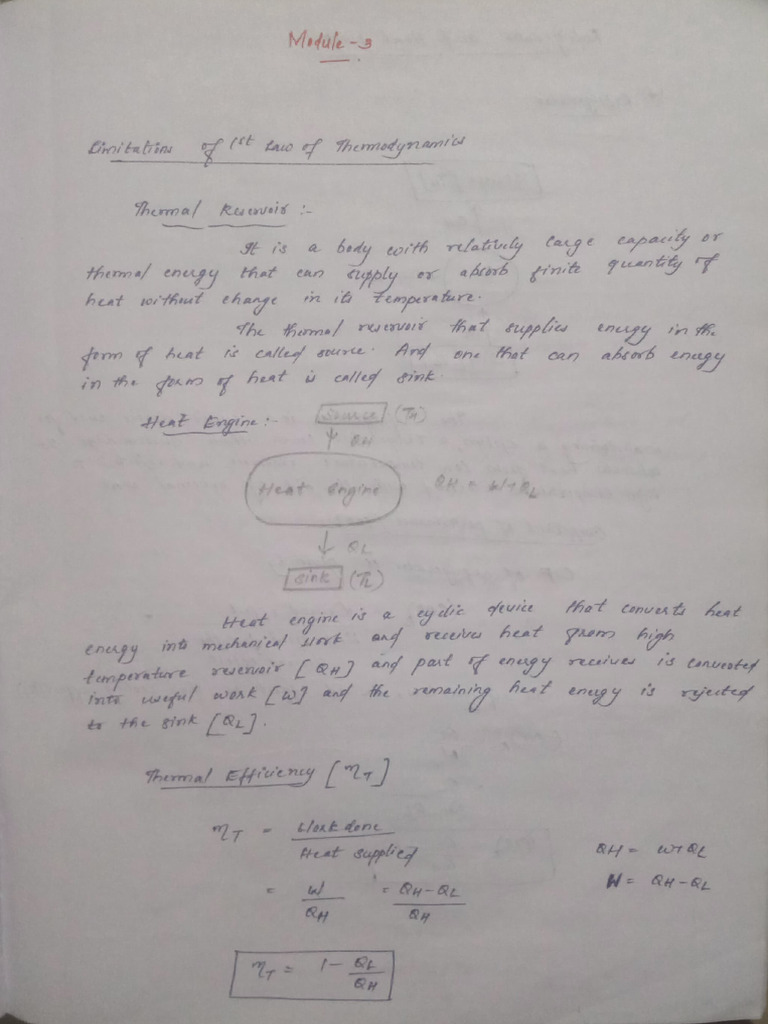 Module - 3
Limitations of 1st Law of Thermodynamics
Thermal Reservoir :-
It is a body with relatively large capacity or
thermal energy that can supply or absorb finite quantity of
heat without change in its temperature.
The thermal reservoir that supplies energy in the
form of heat is called source. And one that can absorb energy
in the form of heat is called sink.
Heat Engine :- Source (TH)
↓ QH
Heat engine QH = W+QL
↓ QL
Sink (TL)
Heat engine is a cyclic device that converts heat
energy into mechanical work and receives heat from high
temperature reservoir [QH] and part of energy receives is converted
into useful work [W] and the remaining heat energy is rejected
to the sink [QL].
Thermal Efficiency [ηT]
ηT = Work done / Heat supplied
QH = W+QL
= W / QH = QH - QL / QH
W = QH - QL
ηT = 1 - QL / QH